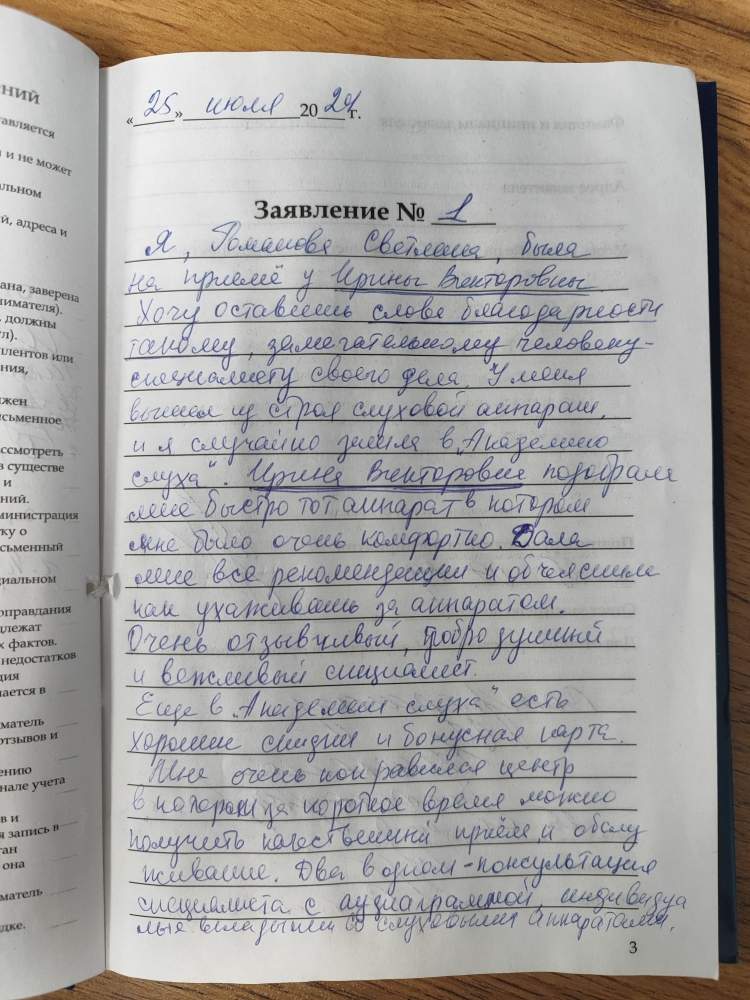 ЕНИЙ
тавляется
и не может
альном
й, адреса и
ана, заверена
нимателя).
, должны
ул).
плентов или
ния,
жен
исьменное
ссмотреть
в существе
и
ний.
министрация
тку о
сьменный
циальном
оправдания
длежат
х фактов.
недостатков
ция
чается в
матель
отзывов и
ению
нале учета
в и
я запись в
ган
она
матель
дке.
«25» июля 2024 г.
Заявление № 1
Я, Романова Светлана, была
на приеме у Ирины Викторовны
Хочу оставить слова благодарности
такому, замечательному человеку-
специалисту своего дела. У меня
вышел из строя слуховой аппарат,
и я случайно зашла в „Академию
слуха“. Ирина Викторовна подобрала
мне быстро тот аппарат в котором
мне было очень комфортно. Дала
мне все рекомендации и объяснила
как ухаживать за аппаратом.
Очень отзывчивый, добродушный
и вежливый специалист.
Еще в „Академии слуха“ есть
хорошие скидки и бонусная карта.
Мне очень понравился центр
в котором за короткое время можно
получить качественный приём и обслу
живание. Два в одном - консультация
специалиста с аудиограммой, индивидуа
льные вкладыши со слуховыми аппаратами.
3